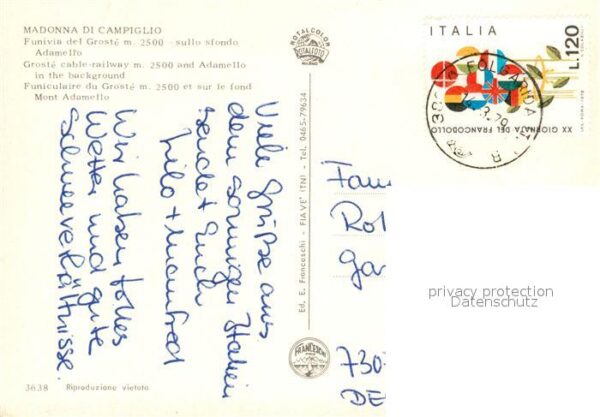 MADONNA DI CAMPIGLIO
Funivia del Grosté m. 2500 - sullo sfondo
Adamello
Grosté cable-railway m. 2500 and Adamello
in the background
Funiculaire du Grosté m. 2500 et sur le fond
Mont Adamello
Viele Grüße aus
dem sonnigen Italien
sendet Euch
Lilo + Manfred
Wir haben tolles
Wetter und gute
Schneeverhältnisse.
ROTALCOLOR
ROTALFOTO
MILANO
Ed. E. Franceschi - FIAVE' (TN) - Tel. 0465-79634
FRANCESCHI
ITALIA
L.120
XX GIORNATA DEL FRANCOBOLLO
FOLGARIDA
Fam
Rol
Gar
730
DE
privacy protection
Datenschutz
3638 Riproduzione vietata